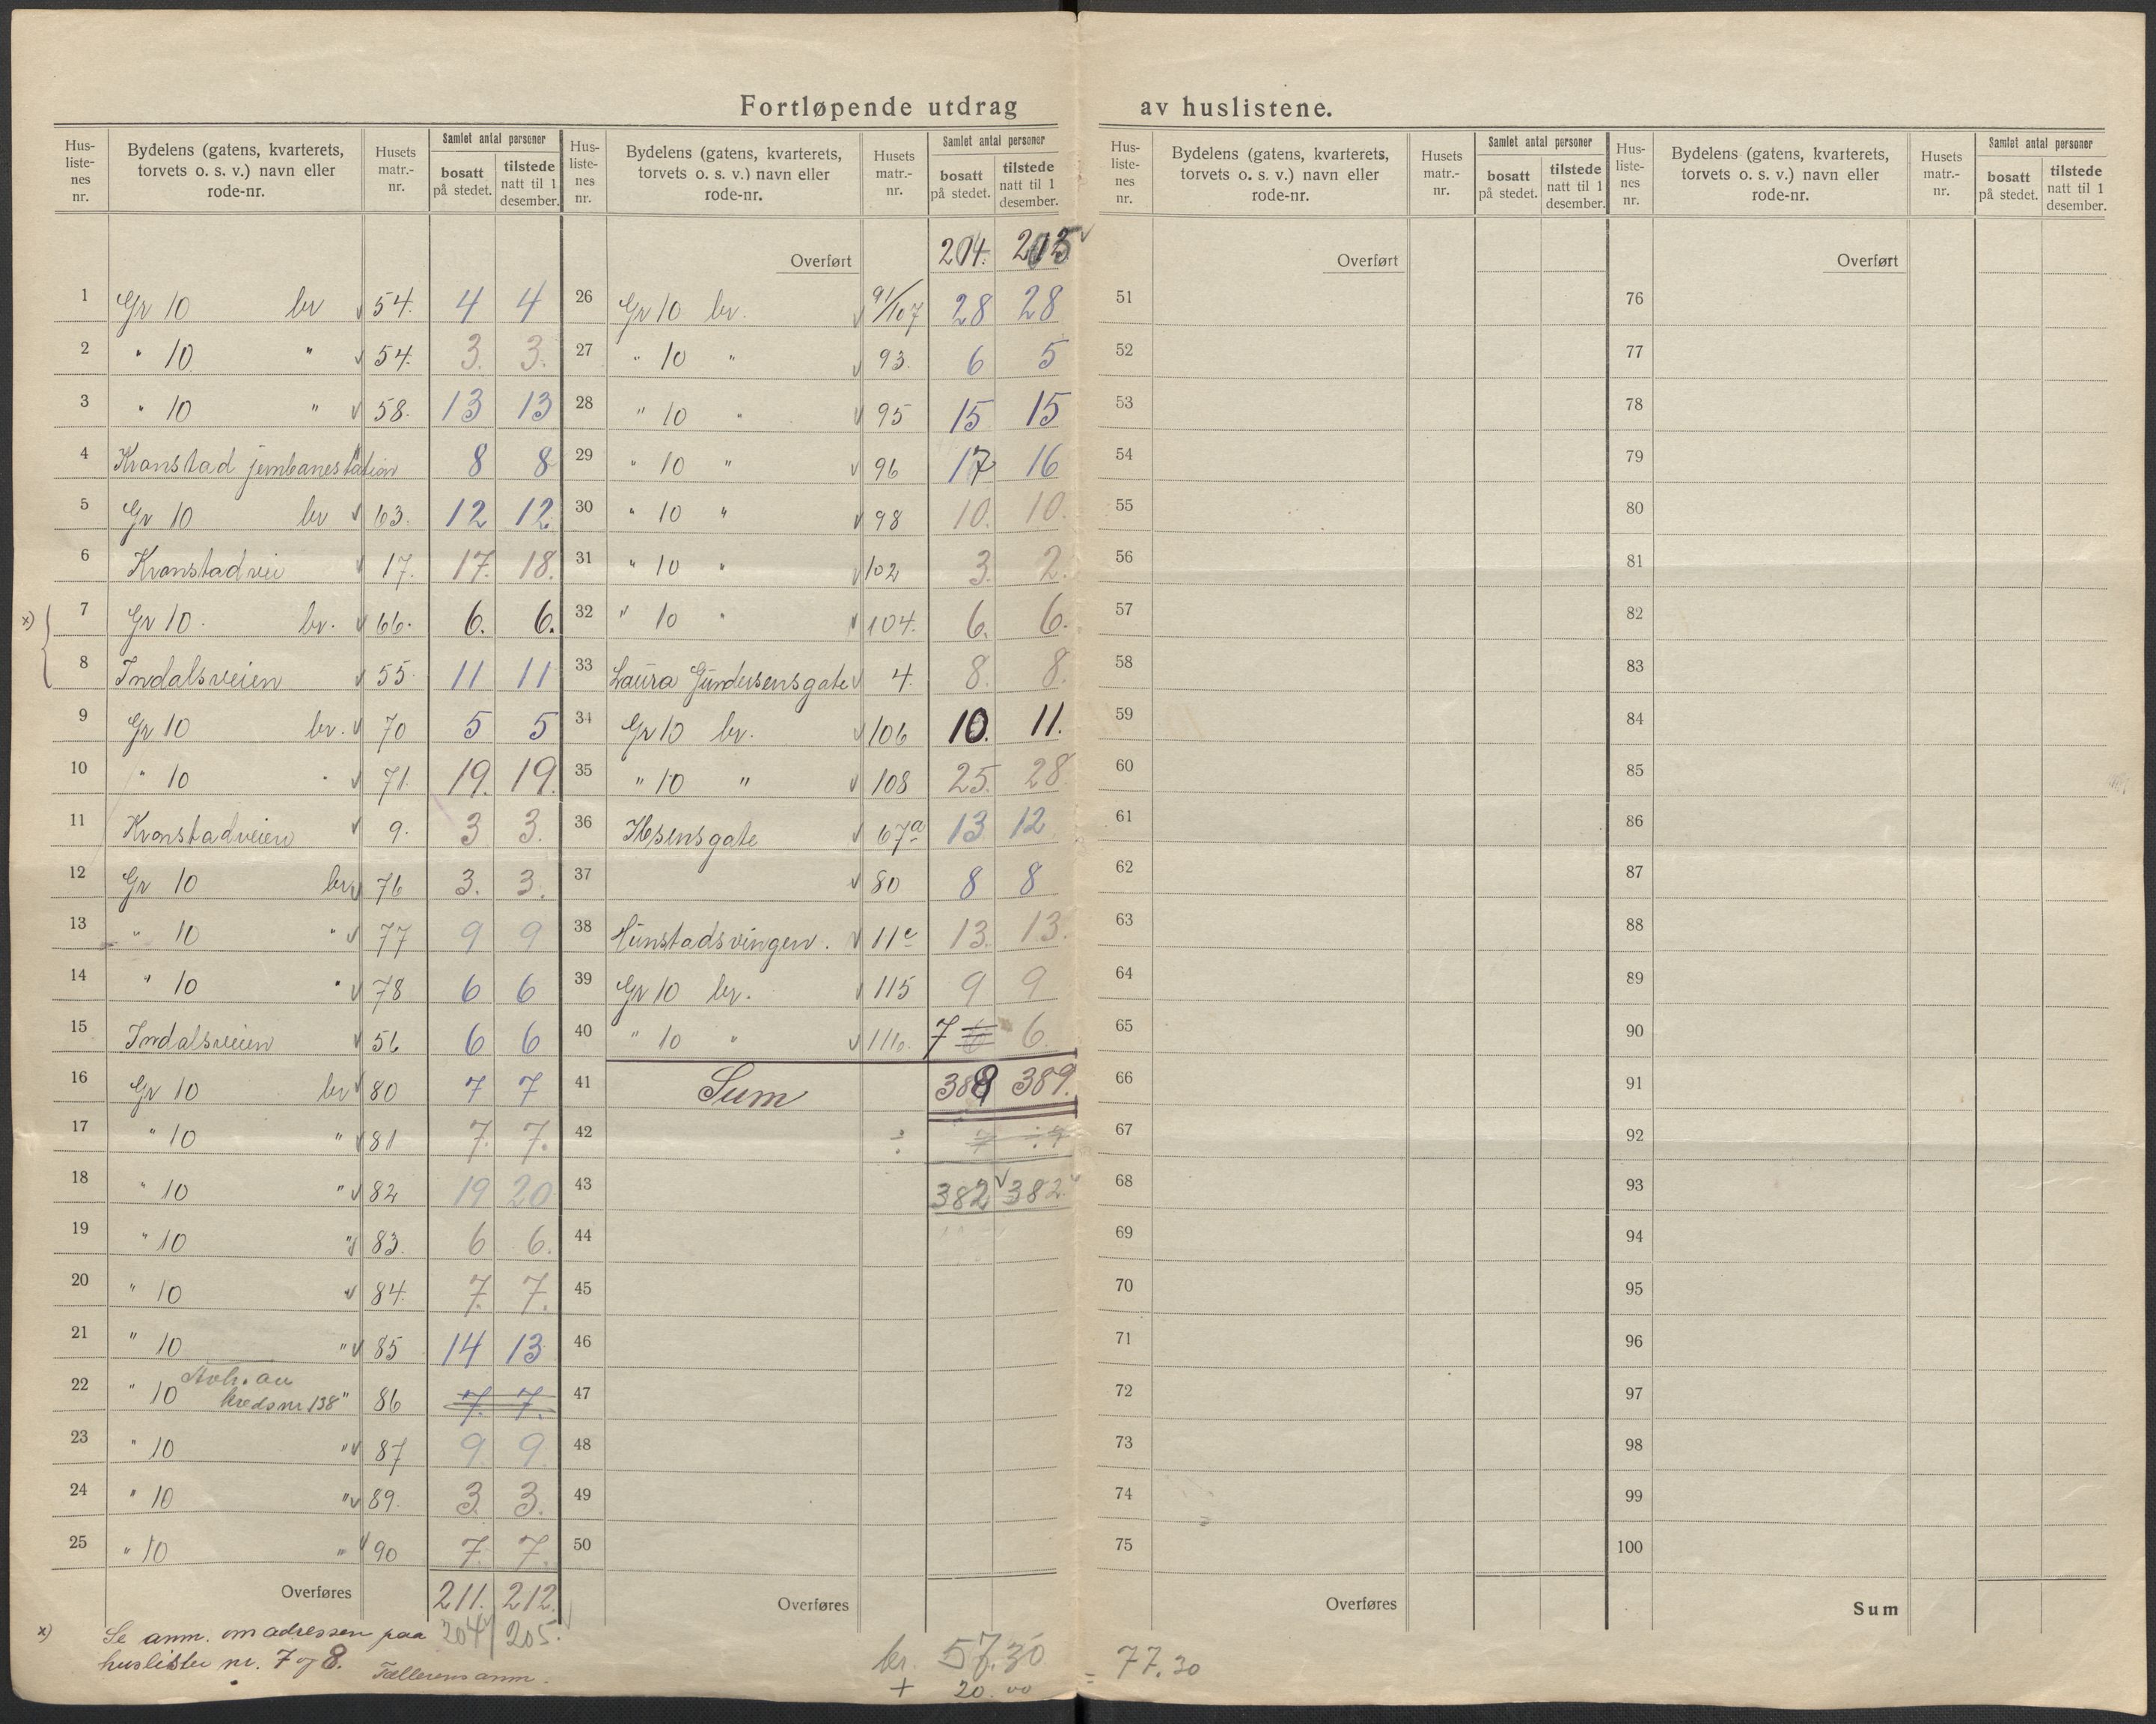 Fortløpende utdrag av huslistene.
Hus-listenes nr. | Bydelens (gatens, kvarterets, torvets o. s. v.) navn eller rode-nr. | Husets matr.-nr. | Samlet antal personer bosatt på stedet. | tilstede natt til 1 desember.
1 Gr 10 br 54. 4 4
2 " 10 " 54. 3. 3.
3 " 10 " 58. 13 13
4 Kronstad jernbanestation 8 8
5 Gr 10 br 63. 12 12
6 Kronstadvei 17. 17. 18.
x) 7 Gr 10. br. 66. 6. 6.
8 Indalsveien 55 11 11
9 Gr 10 br. 70 5 5
10 " 10 " 71. 19. 19.
11 Kronstadveien 9. 3 3.
12 Gr 10 br 76 3. 3.
13 " 10 " 77 9 9
14 " 10 " 78 6 6
15 Indalsveien 56 6 6
16 Gr 10 br 80 7 7
17 " 10 " 81 7. 7.
18 " 10 " 82 19 20
19 " 10 " 83. 6 6.
20 " 10 84. 7. 7.
21 " 10 " 85 14 13
22 " 10 av kredsnr 138 " 86 7. 7.
23 " 10 " 87 9 9.
24 " 10 " 89. 3 3.
25 " 10 " 90 7. 7.
Overføres 211. 212.
204 205.
x) Se anm. om adressen paa
huslister nr. 7 og 8. Tællerens anm.
Hus-listenes nr. | Bydelens (gatens, kvarterets, torvets o. s. v.) navn eller rode-nr. | Husets matr.-nr. | Samlet antal personer bosatt på stedet. | tilstede natt til 1 desember.
Overført 204. 205
26 Gr 10 br. 91/107 28 28
27 " 10 " 93. 6 5
28 " 10 " 95 15 15
29 " 10 " 96 17 16
30 " 10 " 98 10. 10.
31 " 10 " 102 3. 2.
32 " 10 " 104. 6. 6.
33 Laura Gundersensgate 4. 8. 8.
34 Gr 10 br. 106 10. 11.
35 " 10 " 108 25. 28.
36 Ibsensgate 67a 13 12
37 80 8 8
38 Hunstadsvingen. 11c 13. 13.
39 Gr 10 br. 115 9 9
40 " 10 " 116. 7 6 6.
41 Sum 389 389.
42 ÷ 7 ÷ 7
43 382 382
44
45
46
47
48
49
50
Overføres
kr. 57.30
+ 20.00
= 77.30
Hus-listenes nr. | Bydelens (gatens, kvarterets, torvets o. s. v.) navn eller rode-nr. | Husets matr.-nr. | Samlet antal personer bosatt på stedet. | tilstede natt til 1 desember.
Overført
51
52
53
54
55
56
57
58
59
60
61
62
63
64
65
66
67
68
69
70
71
72
73
74
75
Overføres
Hus-listenes nr. | Bydelens (gatens, kvarterets, torvets o. s. v.) navn eller rode-nr. | Husets matr.-nr. | Samlet antal personer bosatt på stedet. | tilstede natt til 1 desember.
Overført
76
77
78
79
80
81
82
83
84
85
86
87
88
89
90
91
92
93
94
95
96
97
98
99
100
Sum